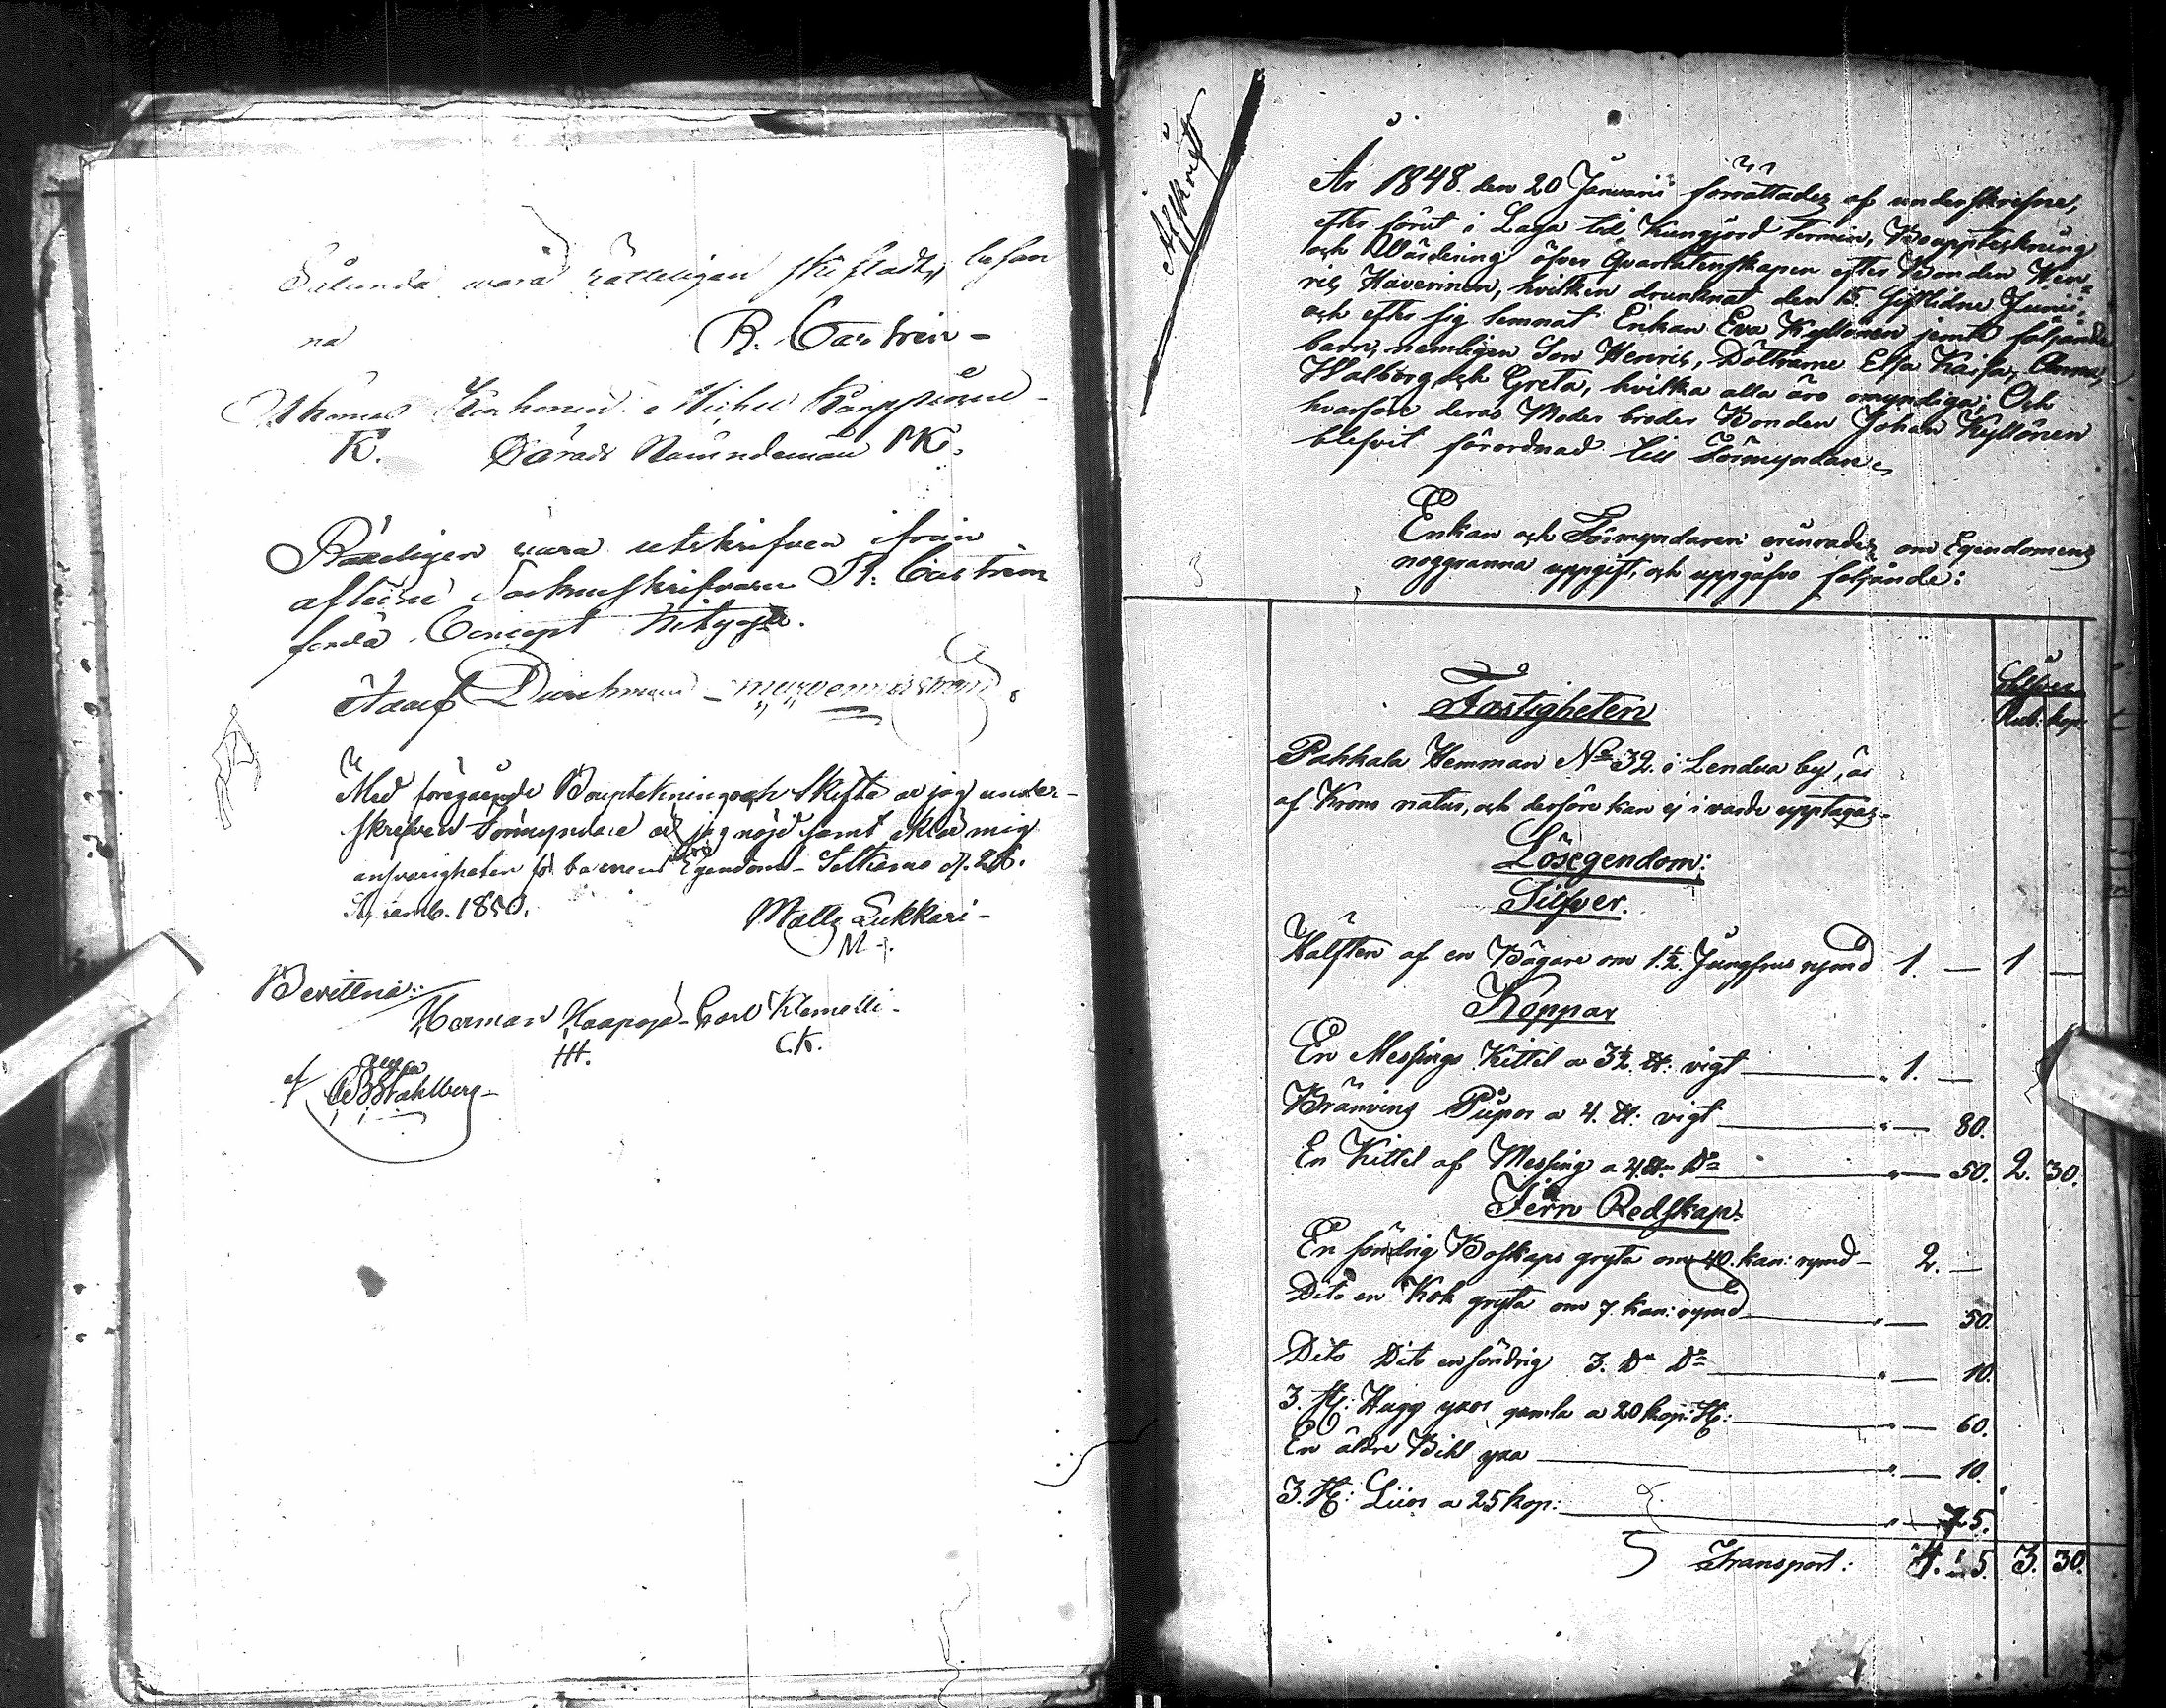 Sålunda vara rätteligen skiftadt, befan
na R. Castrén
Thomas Karhonen Michel Karppinen
K. Härads Nämndeman MK.
Rätteligen vara utskrifven ifrån
aflidne Sockneskrifvaren R: Castréns
Concept betygar.
Durchman
Med föregående Bouptekning och Skifte är jag under-
skrefven Förmyndare nöjd samt iklär mig
ansvarigheten för barnens Egendom - d. 26.
1850. Matts Lukkari -
M +.
Bevittna:
Herman Haapoja - Carl Klemetti -
HH. C.K.
af Wahlberg -
Afskrift
År 1848. den 20 Januarii förrättades af underskrefne,
efter förut i Laga tid kungjord termin, Boupptekning
och Wärdering öfver Qvarlåtenskapen efter Bonden Hen=
rik Haverinen, hvilken drunknat den 15. sistlidne Junii,
och efter sig lemnat Enkan Eva Kyllönen jemte följande
barn, nemligen Son Henric, Döttrarne Elsa Kaisa, Anna,
Walborg och Greta, hvilka alla äro omyndiga; Och
hvarföre deras Moder broder Bonden Johan Kyllönen
blefvit förordnad till Förmyndare,
Enkan och Förmyndaren erinrades om Egendomens
noggranna uppgift, och uppgåfvo följande:
Silfver
Rub. kop.
Fastigheten
Pakkala Hemman No 32. i Lendua by, är
af Krono natur, och derföre kan ej i värde upptagas -
Lösegendom:
Silfver.
Hälften af en Bägare om 1.½. Jungfrus rymd 1. — 1 —
Koppar
En Messings Kittel a 3½. ℔: vigt " 1. —
Bränvins Pipor a 4. ℔: vigt " — 80.
En Kittel af Messing a 4 ℔: Do " — 50. 2. 30.
Jern Redskap.
En söndrig Boskaps gryta om 40. kan: rymd - 2. —
Dito en Kok gryta om 7. kan: rymd " — 50.
Dito Dito en söndrig 3. Do Do " — 10.
3. St: Hugg yxor gamla a 20 kop: St: " — 60.
En äldre Bihl yxa " — 10.
3. St: Liior a 25 kop: " — 75.
Transport: 4. 5. 3. 30.